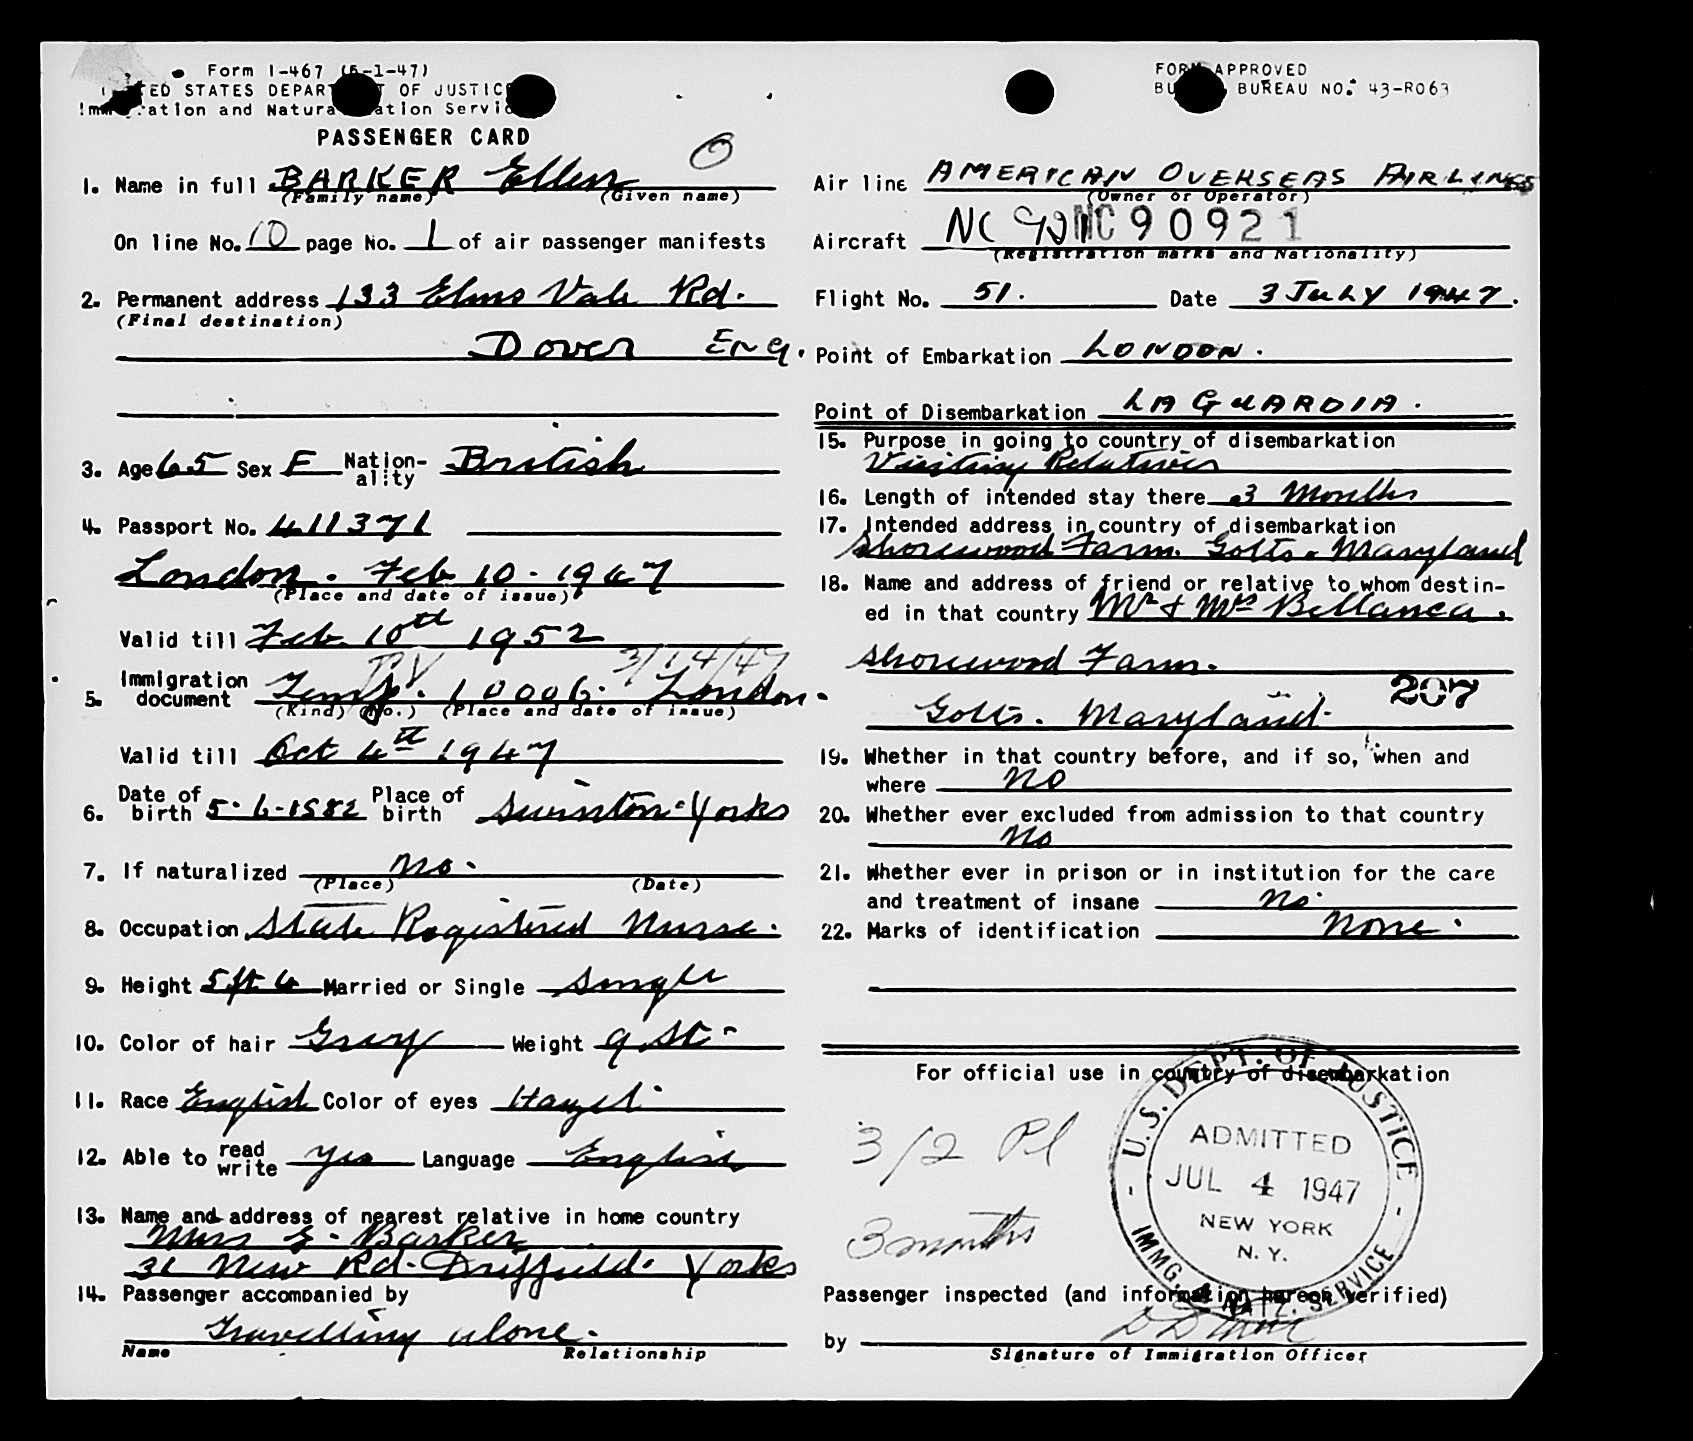 Form I-467 (5-1-47)
UNITED STATES DEPARTMENT OF JUSTICE
Immigration and Naturalization Service
PASSENGER CARD
FORM APPROVED
BUREAU NO. 43-R063
O
1. Name in full BARKER Ellen
(Family name) (Given name)
On line No. 10 page No. 1 of air passenger manifests
2. Permanent address 133 Elms Vale Rd.
(Final destination)
Dover Eng.
3. Age 65 Sex F Nationality British
4. Passport No. 411371
London. Feb 10 - 1947
(Place and date of issue)
Valid till Feb. 10th 1952
PV 3/14/47
5. Immigration document Temp. 10006. London.
(Kind) (No.) (Place and date of issue)
Valid till Oct 4th 1947
6. Date of birth 5-6-1882 Place of birth Swinton-Yorks
7. If naturalized No.
(Place) (Date)
8. Occupation State Registered Nurse.
9. Height 5 ft 4 Married or Single Single
10. Color of hair Grey Weight 9 st-
11. Race English Color of eyes Hazel
12. Able to read write yes Language English
13. Name and address of nearest relative in home country
Miss E. Barker
31 New Rd. Driffield. Yorks
14. Passenger accompanied by
Travelling alone.
Name Relationship
Air line AMERICAN OVERSEAS AIRLINES
(Owner or Operator)
Aircraft NC 90 NC90921
(Registration marks and Nationality)
Flight No. 51. Date 3 JULY 1947.
Point of Embarkation LONDON.
Point of Disembarkation LA GUARDIA.
15. Purpose in going to country of disembarkation
Visiting Relatives
16. Length of intended stay there 3 Months
17. Intended address in country of disembarkation
Shorewood Farm. Golts. Maryland
18. Name and address of friend or relative to whom destin-
ed in that country Mr & Mrs Bellanca.
Shorewood Farm.
207
Golts. Maryland.
19. Whether in that country before, and if so, when and
where No
20. Whether ever excluded from admission to that country
No
21. Whether ever in prison or in institution for the care
and treatment of insane No.
22. Marks of identification None.
For official use in country of disembarkation
3/2 Pl
3 months
U.S. DEPT. OF JUSTICE
ADMITTED
JUL 4 1947
NEW YORK
N. Y.
IMMG. & NATZ. SERVICE
Passenger inspected (and information hereon verified)
by
Signature of Immigration Officer